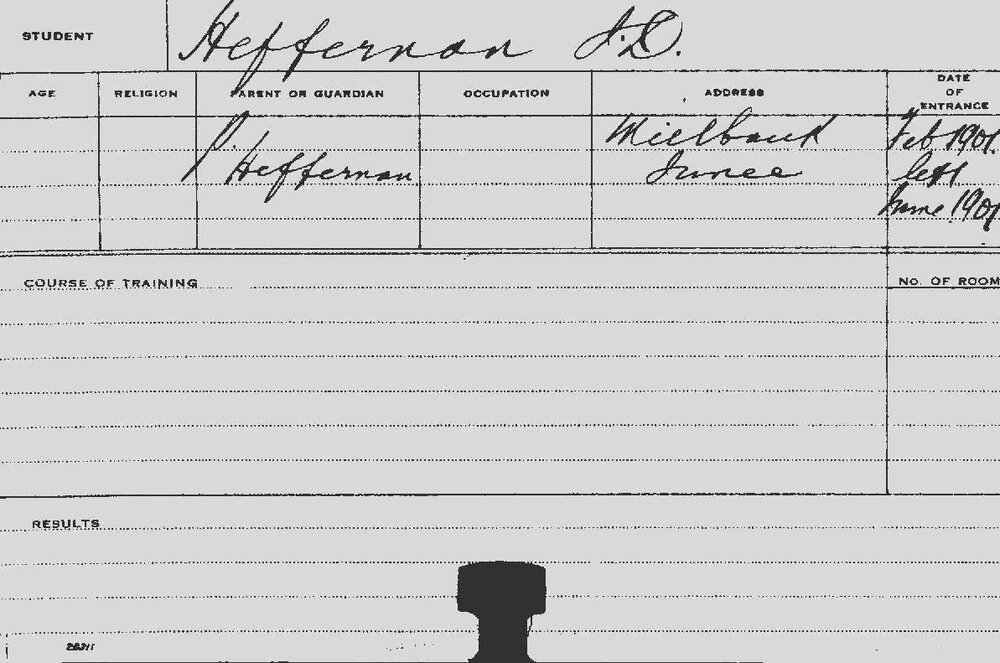 STUDENT Heffernan J.D.
AGE RELIGION PARENT OR GUARDIAN OCCUPATION ADDRESS DATE OF ENTRANCE
P. Heffernan
Millbank
Junee
Feb 1901.
left
June 1901
COURSE OF TRAINING
No. OF ROOM
RESULTS